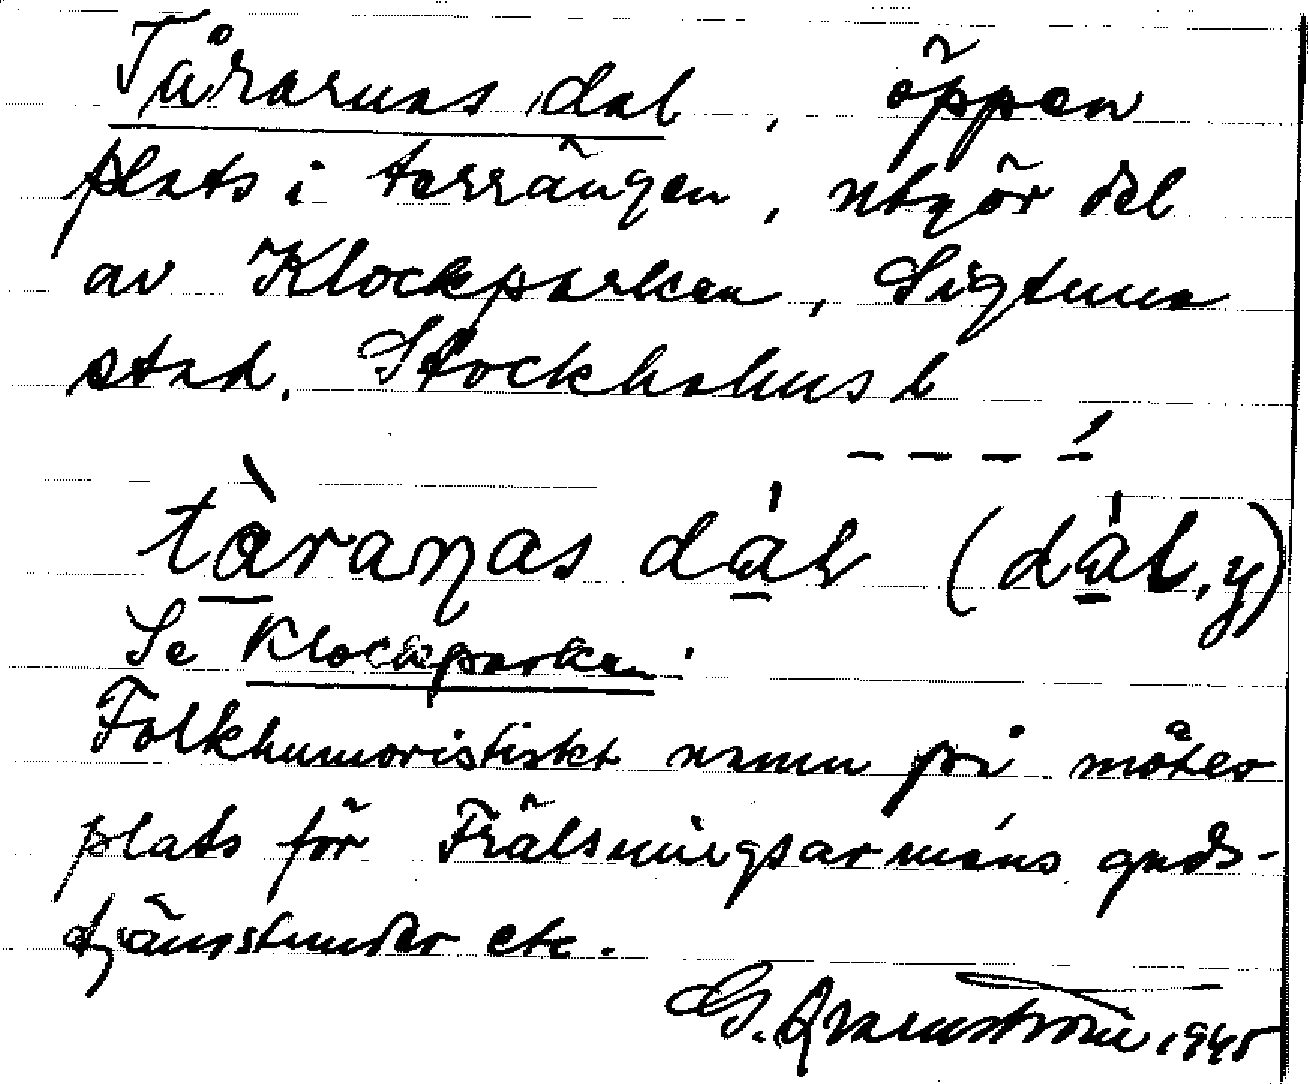 Tårarnas dal, öppen
plats i terrängen, utgör del
av Klockparken, Sigtuna
stad. Stockholms l
tàraƞas dál (dál, y)
Se Klockparken.
Folkhumoristiskt namn på mötes
plats för Frälsningsarméns guds-
tjänststunder etc.
G. Qvarnström 1945